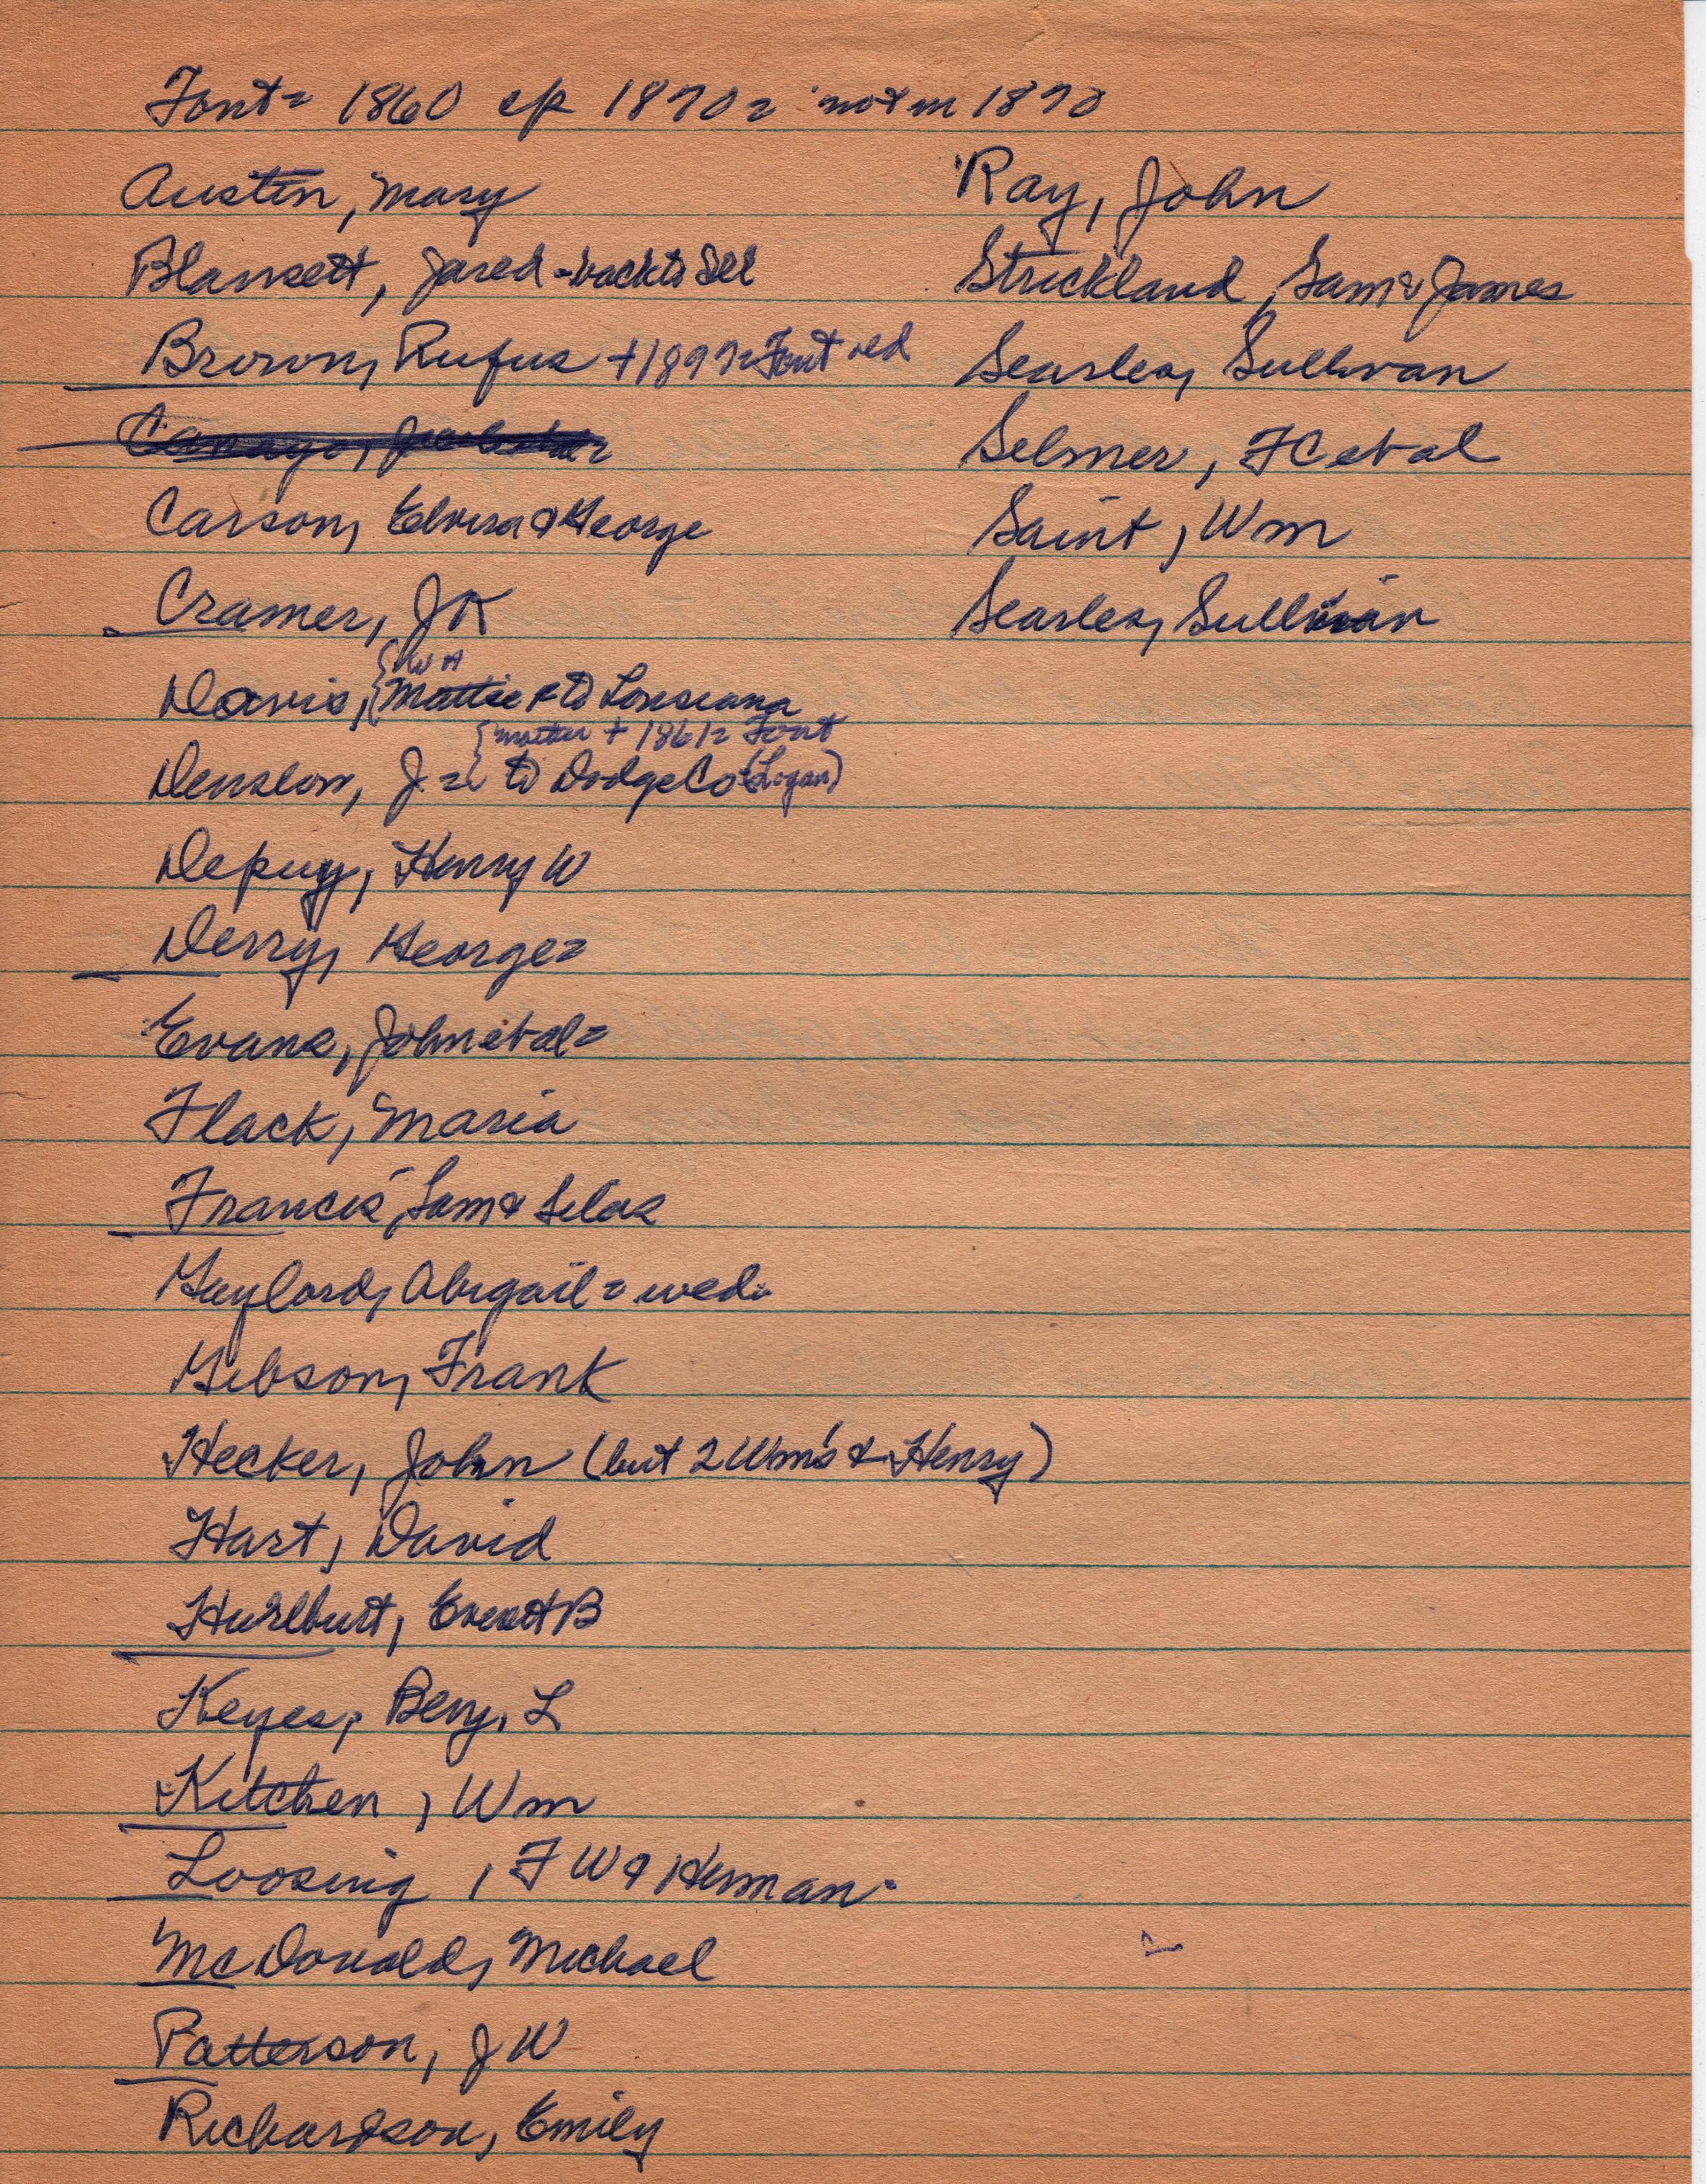 Font = 1860 cp 1870 = not in 1870
Austin, Mary
Blansett, Jared - back to Sel
Brown, Rufus + 1897 = Font old
Carson, Elvira & George
Cramer, JK
W A
Davis, { Mattie & to Lousiana
{ mother + 1861 = Font
Denslow, J = { to Dodge Co (Logan)
Depuy, Henry W
Derry, George =
Evans, John et al =
Flack, Maria
Francis, Sam & Silas
Gaylord, Abigail = wed.
Gibson, Frank
Hecker, John (but 2 Wm's & Henry)
Hart, David
Hurlburt, Everett B
Keyes, Benj. L
Kitchen, Wm
Loosing, F W & Herman
McDonald, Michael
Patterson, J W
Richardson, Emily
Ray, John
Strickland, Sam & James
Searles, Sullivan
Selmer, F C et al
Saint, Wm
Searles, Sullivan